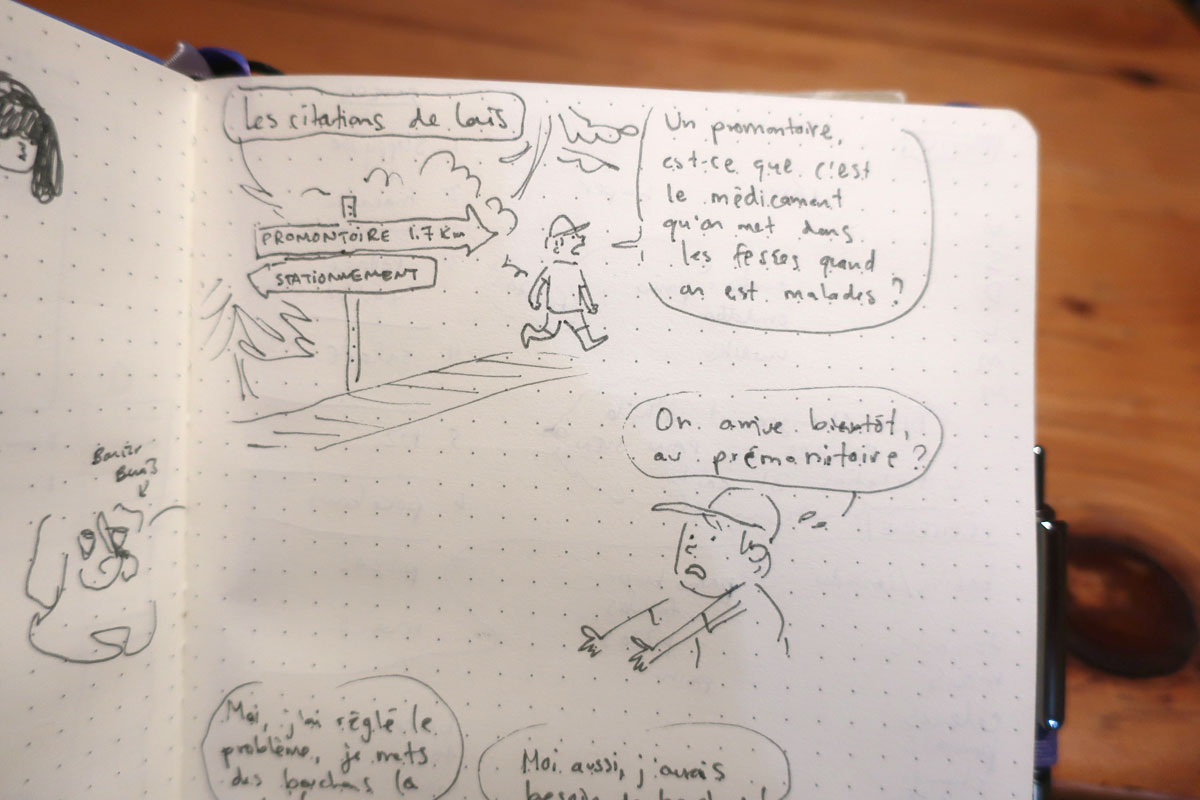 Les citations de Loïs
PROMONTOIRE 1.7 km
STATIONNEMENT
Un promontoire,
est-ce que c'est
le médicament
qu'on met dans
les fesses quand
on est malades ?
On arrive bientôt,
au prémonitoire ?
Moi, j'ai réglé le
problème, je mets
des bouchons la
Moi aussi, j'aurais
besoin de